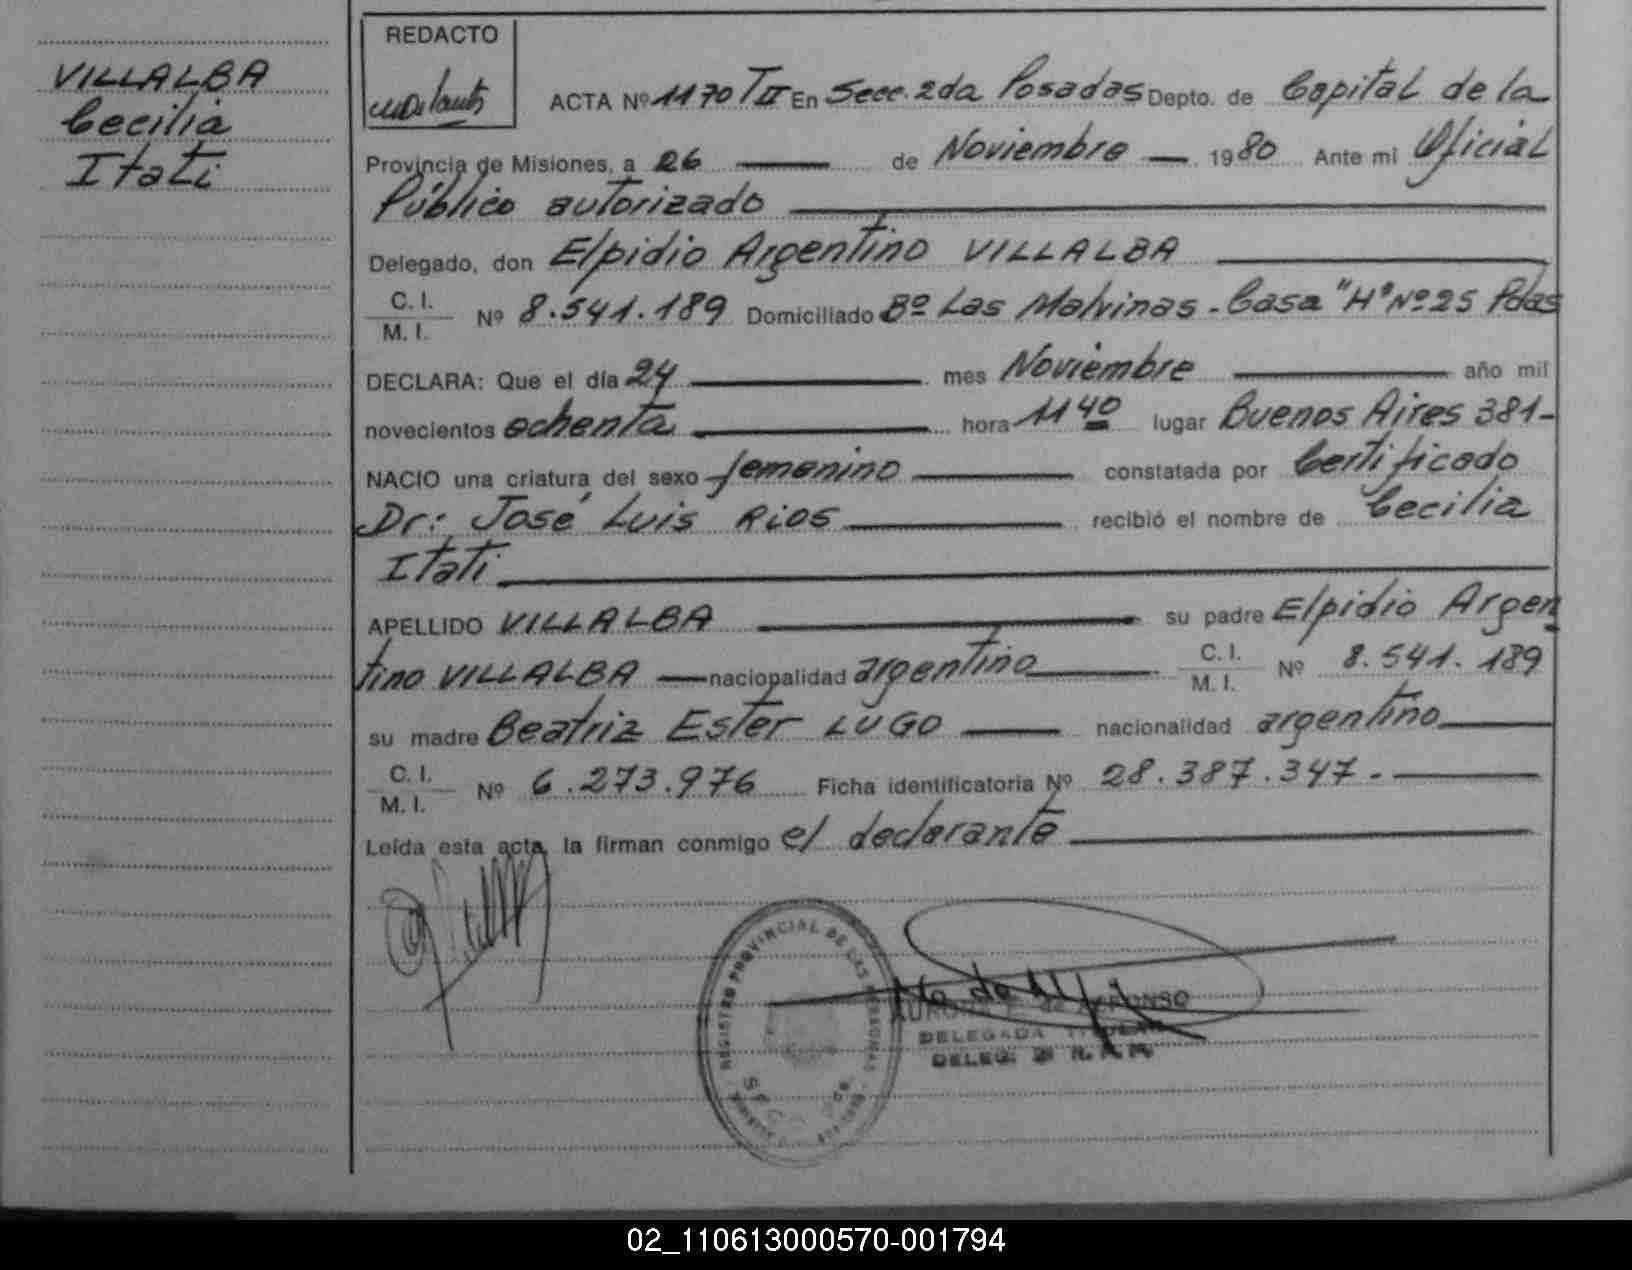 VILLALBA
Cecilia
Itati
REDACTO
ACTA Nº 1170 TII En Secc. 2da Posadas Depto. de Capital de la
Provincia de Misiones, a 26 de Noviembre 1980 Ante mi Oficial
Público autorizado
Delegado, don Elpidio Argentino VILLALBA
C. I.
M. I. Nº 8.541.189 Domiciliado Bº Las Malvinas - Casa "H" Nº 25 Pdas
DECLARA: Que el día 24 mes Noviembre año mil
novecientos ochenta hora 11 40 lugar Buenos Aires 381-
NACIO una criatura del sexo femenino constatada por Certificado
Dr: José Luis Rios recibió el nombre de Cecilia
Itati
APELLIDO VILLALBA su padre Elpidio Argen
tino VILLALBA nacionalidad argentino C. I.
M. I. Nº 8.541.189
su madre Beatriz Ester LUGO nacionalidad argentino
C. I.
M. I. Nº 6.273.976 Ficha identificatoria Nº 28.387.347.-
Leída esta acta, la firman conmigo el declarante
REGISTRO PROVINCIAL DE LAS PERSONAS
DELEGADA TITULAR
02_110613000570-001794